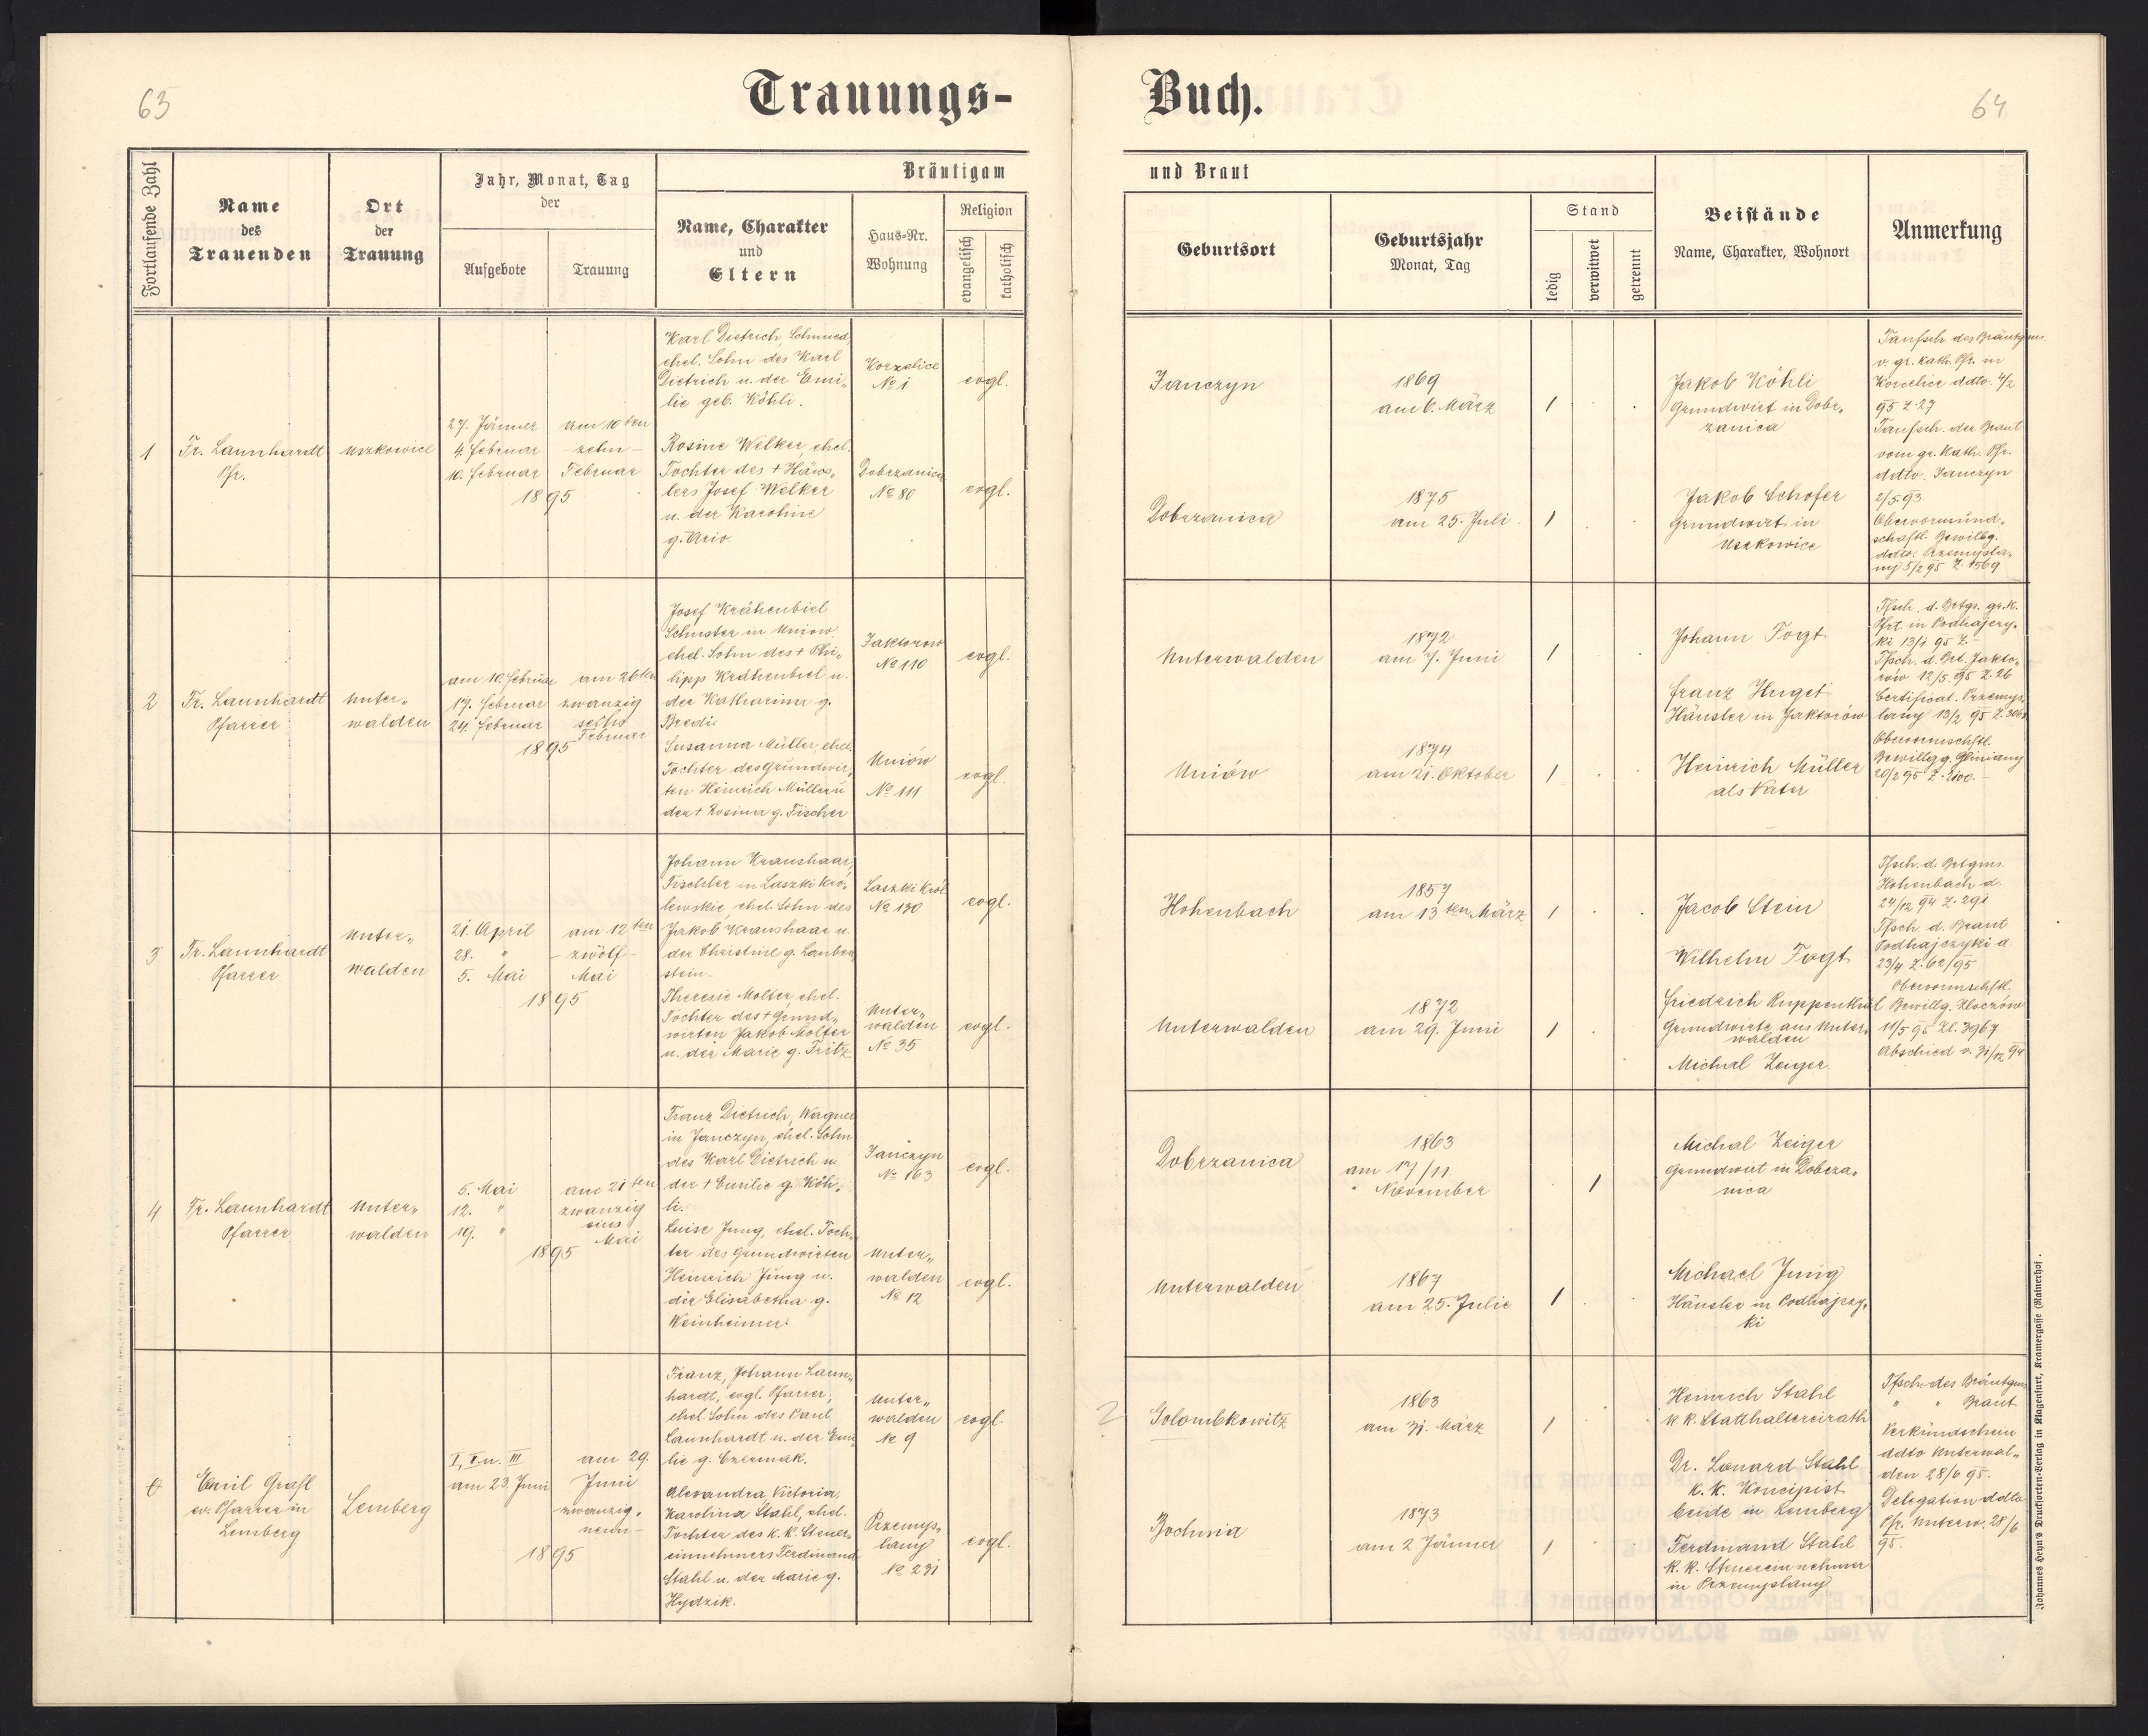 63
Trauungs-
Buch.
64
Fortlaufende Zahl
Name
des
Trauenden
Ort
der
Trauung
Jahr, Monat, Tag
der
Aufgebote
Trauung
Bräutigam
Name, Charakter
und
Eltern
Haus-Nr.
Wohnung
Religion
evangelisch
katholisch
und Braut
Geburtsort
Geburtsjahr
Monat, Tag
Stand
ledig
verwitwet
getrennt
Beistände
Name, Charakter, Wohnort
Anmerkung
1
Fr. Launhardt
Pfr.
Uszkowice
27. Jänner
4. Februar
10. Februar
am 10ten
-zehn-
Februar
1895
Karl Dietrich, Schmied,
ehel. Sohn des Karl
Dietrich u. der Emi„
lie geb. Köhli.
Korzelice
No 1
evgl.
Rosine Welker, ehel.
Tochter des + Häus„
lers Josef Welker
u. der Karoline
g.
Dobrzanica
No 80
evgl.
Janczyn
1869
am 6. März
1
Dobrzanica
1875
am 25. Juli
1
Jakob Köhli
Grundwirt in Dobr„
zanica
Jakob Schofer
Grundwirt in
Uszkowice
Taufsch des Bräutgms.
v. gr. kath. Pfr. in
Korzelice ddto. 4/2
95 Z. 27
Taufsch. der Braut
vom gr. Kath. Pfr.
ddto. Janczyn
2/5.93.
Obervormund„
schaftl. Bewillg.
ddto. Przemysla„
ny 5/2 95 Z. 1569
2
Fr. Launhardt
Pfarrer
Unter„
walden
am 10. Februar
17. Februar
24. Februar
am 26ten
zwanzig
sechs
Februar
1895
Josef Krähenbiel
Schuster in Uniow
ehel. Sohn des + Phi„
lipp Krähenbiel u.
der Katharina g.
Bredi
Jaktorow
No 110
evgl.
Susanna Müller, ehel.
Tochter des Grundwir„
ten Heinrich Müller u
der + Rosina g. Fischer
Uniów
No 111
evgl.
Unterwalden
1872
am 7. Juni
1
Uniów
1874
am 21. Oktober
1
Johann Fogt
Franz Huget
Häusler in Jaktorów
Heinrich Müller
als Vater
Tfsch. d. Brtgs. gr. k.
Pfrt in Podhajczy„
ki 13/1 95 Z.
Tfsch. d. Brt. Jakto„
rów 12/5.95 Z. 26
Certificat. Przemys„
lany 13/2 95
Obervormschftl.
Bewillgg. Gliniany
20/2 95 Z. 2100.-
3
Fr. Launhardt
Pfarrer
Unter„
walden
21. April
28. "
5. Mai
am 12ten
-zwölf-
Mai
1895
Johann Kraushaar,
Tischler in Laszki Kró„
lewskie, ehel. Sohn des
Jakob Kraushaar u.
der Christine g. Lauben
stein.
Laszki Król.
No 130
evgl.
Theresie Molter, ehel.
Tochter des + Grund„
wirten Jakob Molter
u. der Marie g. Fritz
Unter„
walden
No 35
evgl.
Hohenbach
1857
am 13ten März
1
Unterwalden
1872
am 29. Juni
1
Jacob Stein
Wilhelm Fogt
Friedrich Ruppenthal
Grundwirte aus Unter„
walden
Michal Zeiger
Tfsch. d. Brtgms.
Hohenbach d.
24/12 94 Z. 291
Tfsch. d. Braut
Podhajczyki d
23/4 Z. 62/95
Obervormschftl.
Bewillg. Zloczów
11/5 95 Zl. 3967
Abschied v. 31/12 94
4
Fr. Launhardt
Pfarrer
Unter„
walden
5. Mai
12. "
19. "
am 21ten
zwanzig
eins
Mai
1895
Franz Dietrich, Wagner
in Janczyn, ehel. Sohn
des Karl Dietrich u.
der + Emilie g. Köh„
li.
Janczyn
No 163
evgl.
Luise Jung, ehel. Toch„
ter des Grundwirten
Heinrich Jung u.
der Elisabetha g.
Weinheimer.
Unter„
walden
No 12
evgl.
Dobrzanica
1863
am 17/11.
November
1
Unterwalden
1867
am 25. Julie
1
Michal Zeiger
Grundwirt in Dobrza„
nica
Michael Jung
Häusler in Podhajczy„
ki
Emil Grafl
ev. Pfarrer in
Lemberg
Lemberg
I, II u. III
am 23. Juni
am 29.
Juni
zwanzig„
neun-
1895
Franz, Johann Laun„
hardt, evgl. Pfarrer,
ehel. Sohn des Paul
Launhardt u. der Emi
lie g. Czermak.
Unter„
walden
No 9
evgl.
Alexandra Viktoria,
Karolina Stahl, ehel.
Tochter des k. k. Steuer„
einnehmers Ferdinand
Stahl u. der Marie g.
Hydzik.
Przemys„
lany
No 231
evgl.
?
Golombkowitz
1863
am 31. März
1
Bochnia
1873
am 2. Jänner
1
Heinrich Stahl
k. k. Statthaltereirath
Dr. Leonard Stahl
k. k. Koncipist
beide in Lemberg
Ferdinand Stahl
k. k. Steuereinnehmer
in Przemyslany
Tfsch. des Bräutgms
" " Braut
Verkündschein
ddto Unterwal„
den 28/6 95.
Delegation ddto
Pfr. Unterw. 28/6
95.
Johannes Heyn's Drucksorten-Verlag in Klagenfurt, Kramergasse (Rainerhof).